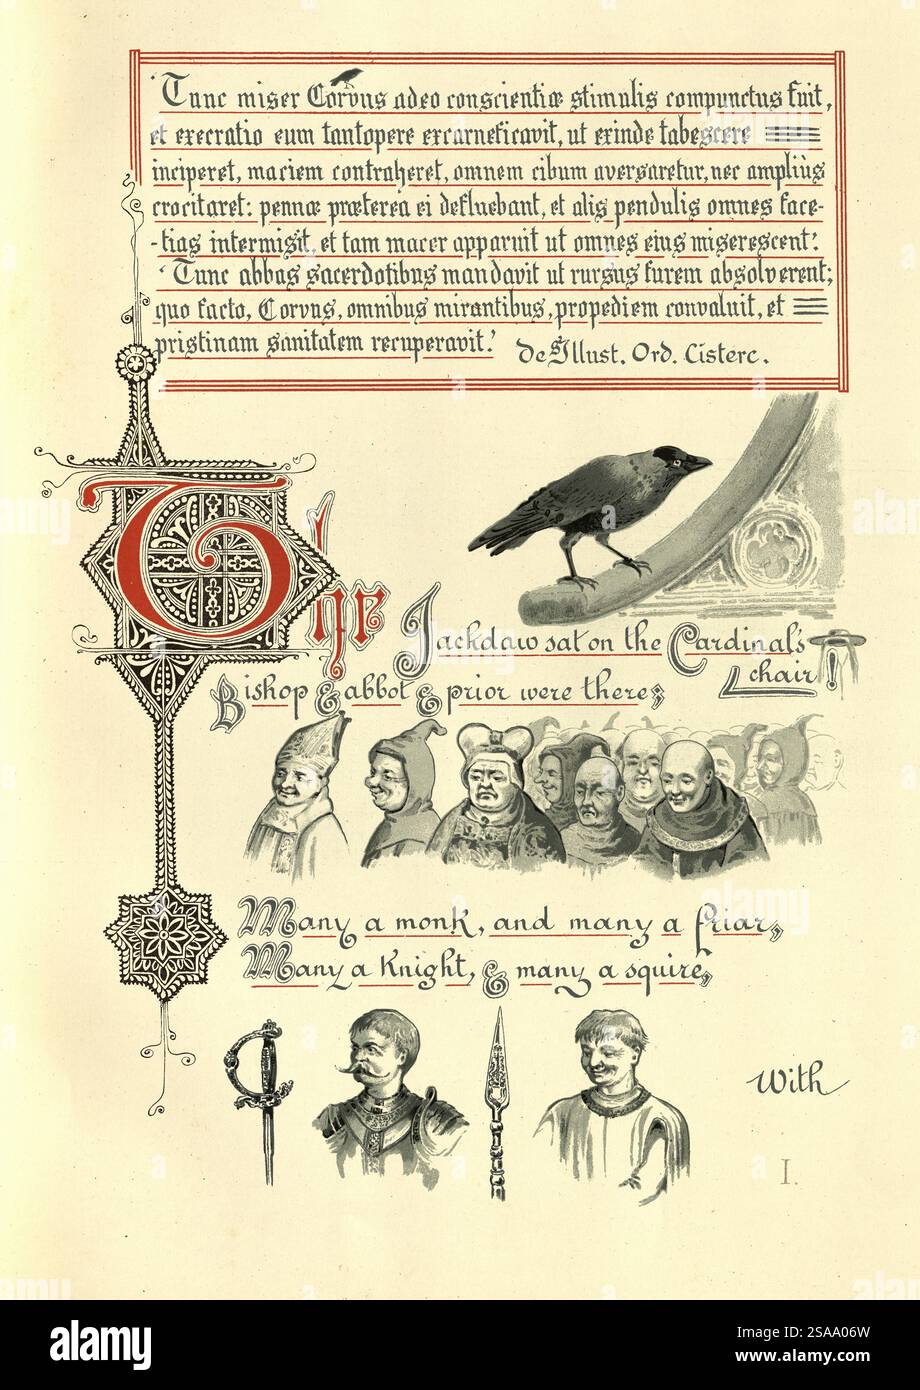 ‘Tunc miser Corvus adeo conscientiæ stimulis compunctus fuit,
et execratio eum tantopere excarneficavit, ut exinde tabescere
inciperet, maciem contraheret, omnem cibum aversaretur, nec ampliùs
crocitaret: pennæ præterea ei defluebant, et alis pendulis omnes face-
-tias intermisit, et tam macer apparuit ut omnes ejus miserescent.’
‘Tunc abbas sacerdotibus mandavit ut rursus furem absolverent;
quo facto, Corvus, omnibus mirantibus, propediem convaluit, et
pristinam sanitatem recuperavit.’ De Illust. Ord. Cisterc.
The Jackdaw sat on the Cardinal's
chair!
Bishop & abbot & prior were there;
Many a monk, and many a friar,
Many a knight, & many a squire,
With
I.
alamy
alamy
Image ID: 2SAA06W
www.alamy.com